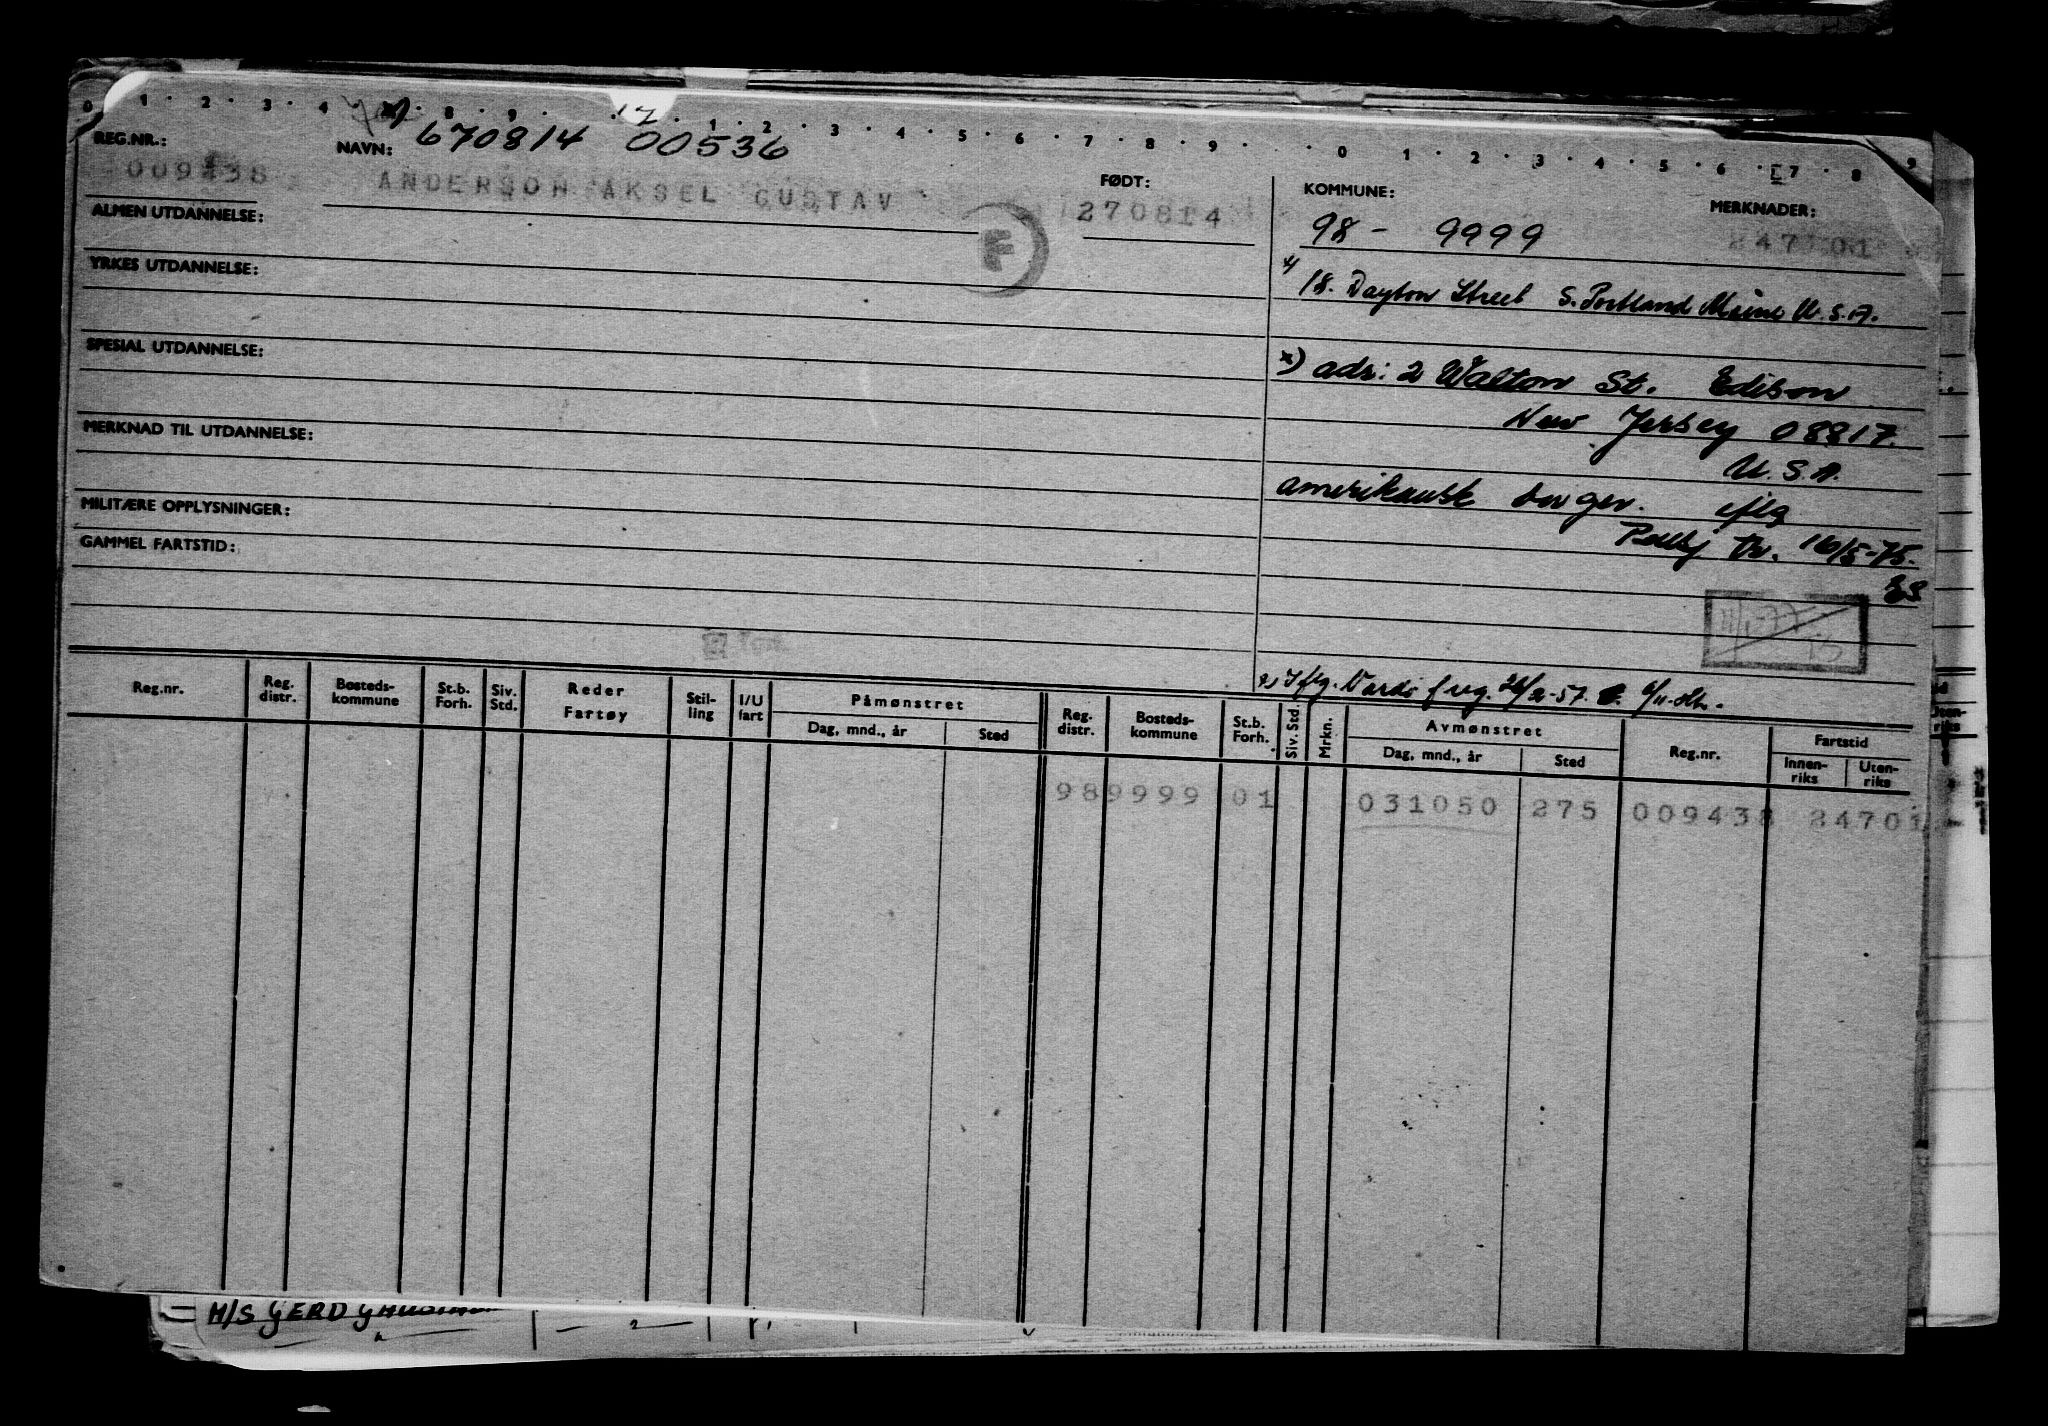 0 1 · 2 · 3 · 4 · 8 · 9 · 12 · 1 · 2 · 3 · 4 · 5 · 6 · 7 · 8 · 9 · · 0 1 · 2 · 3 · 4 · 5 · 6 · 7 · 8 9
REG.NR.: NAVN: 670814 00536
009438 ANDERSON AKSEL GUSTAV
FØDT:
270814
F
ALMEN UTDANNELSE:
YRKES UTDANNELSE:
SPESIAL UTDANNELSE:
MERKNAD TIL UTDANNELSE:
MILITÆRE OPPLYSNINGER:
GAMMEL FARTSTID:
KOMMUNE: MERKNADER:
98 - 9999
18. Dayton Street S. Portland Maine U.S.A.
x) adr: 2 Walton St. Edison
New Jersey 08817.
U.S.A.
amerikansk borger. iflg
br. 16/5-75.
11/1-77
Iflg. Vardø
Reg.nr. Reg. distr. Bosteds-kommune St.b. Forh. Siv. Std. Reder Fartøy Stil-ling I/U fart Påmønstret Dag, mnd., år Sted Reg. distr. Bosteds-kommune St.b. Forh. Siv. Std. Mrkn. Avmønstret Dag, mnd., år Sted Reg.nr. Fartstid Innen-riks Uten-riks
989999 01 031050 275 009438 24701
M/S GERD